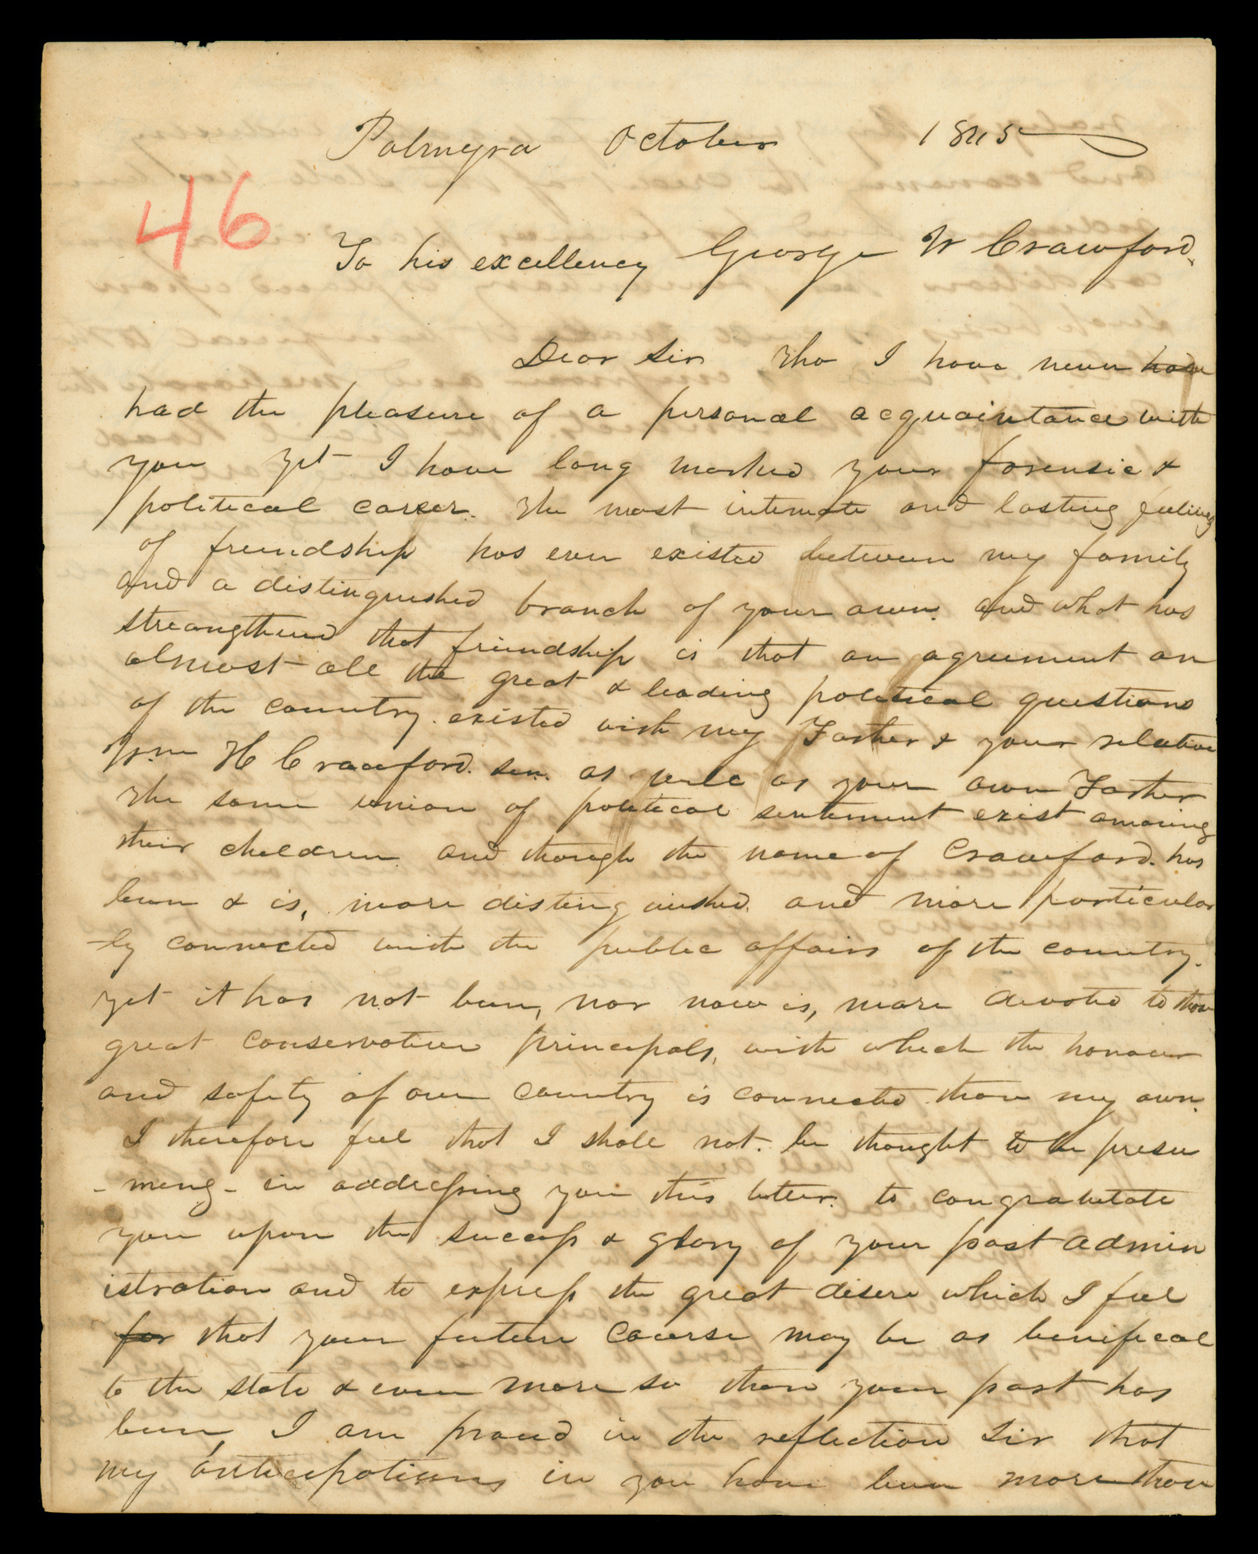 Palmyra October 1845
46
To his excellency George W Crawford.
Dear Sir Tho I have never have
had the pleasure of a personal acquaintance with
you yet I have long marked your forensic &
political career. The most intimate and lasting feelings
of freindship has ever existed between my family
and a distinguished branch of your own. And what has
streangthened that freindship is that an agreement on
almost all the great & leading political questions
of the country. existed with my Father & your relative
Wm H Crawford. sen. as well as your own Father
The same union of political sentement exist amoung
their children and though the name of Crawford. has
been & is, more distinguished. and more particular
-ly connected with the public affairs of the country.
yet it has not been, nor now is, more devoted to those
great conservative principals, with which the honour
and safety of our country is connected than my own.
I therefore feel that I shall not. be thought to be presu
-meing- in addressing you this letter. to congratulate
you upon the success & glory of your past admin
istration and to express the great disere which I feel
for that your future course may be as benifical
to the state & even more so than your past has
been I am proud in the reflection Sir that
my anticipations in you have been more than